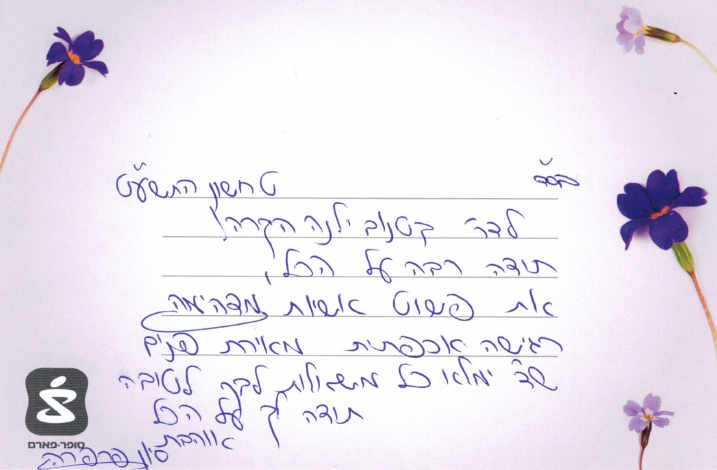 בס״ד
ט חשון התשע״ט
לדר׳ קטנוב ילנה היקרה!
תודה רבה על הכל,
את פשוט אשיות מדהימה
רגישה אכפתית מאירת פנים
שה׳ ימלאו כל משאלות לבך לטובה
תודה לך על הכל
אוהבת
סיון
סופר-פארם